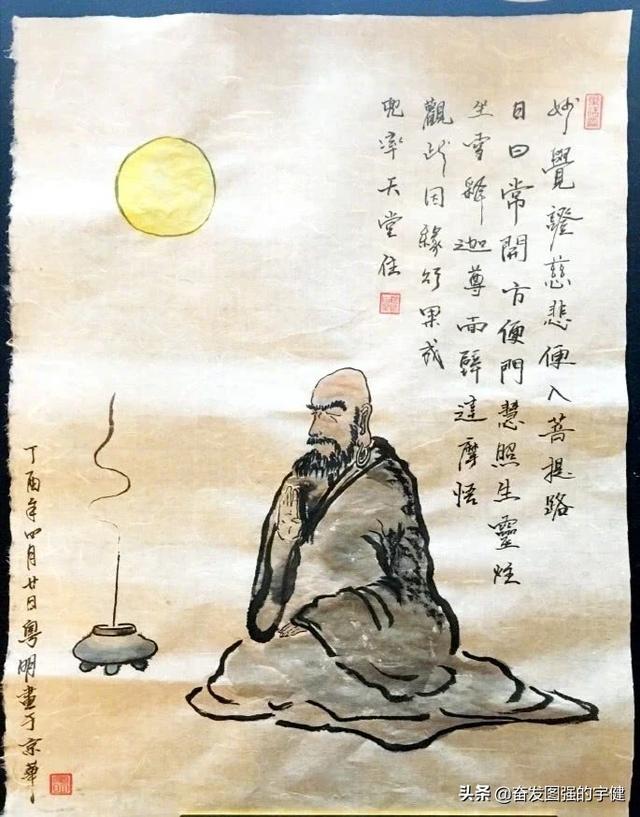 妙覺證慈悲便入菩提路
日日常開方便門慧照生靈炷
坐雪釋迦尊面壁達摩悟
觀此因緣果成
兜率天堂住
丁酉年四月廿日粵明畫于京華
头条 @奋发图强的宇健